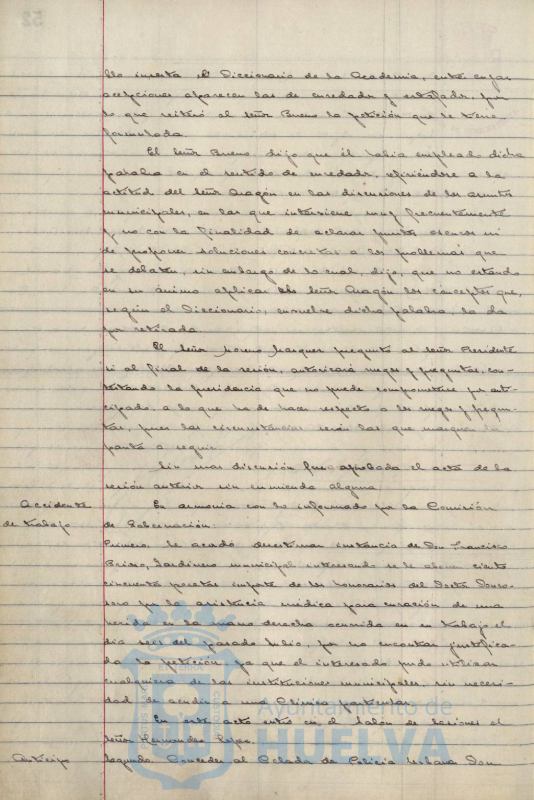 lla inserta el Diccionario de la Academia, entre cuyas
acepciones aparecen las de enredador y estafador, por
lo que reitera al señor Bueno la petición que le tiene
formulada.
El señor Bueno, dijo que él había empleado dicha
palabra en el sentido de enredador, refiriéndose a la
actitud del señor Aragón en las discusiones de los asuntos
municipales, en las que interviene muy frecuentemente
y no con la finalidad de aclarar puntos oscuros ni
de proponer soluciones concretas a los problemas que
se debaten, sin embargo de lo cual, dijo, que no estando
en su ánimo aplicar al señor Aragón los conceptos que,
según el Diccionario, envuelve dicha palabra, la da
por retirada.
El señor Moreno Marquez preguntó al señor Presidente
si al final de la sesión, autorizará ruegos y preguntas, con-
testando la presidencia que no puede comprometerse por anti-
cipado, a lo que ha de hacer respecto a los ruegos y pregun-
tas, pues las circunstancias serán las que marquen la
pauta a seguir.
Sin mas discusión fue aprobada el acta de la
sesión anterior sin enmienda alguna
Accidente
de trabajo
En armonia con lo informado por la Comisión
de Gobernación:
Primero. Se acordó desestimar instancia de Don Francisco
Jardinero municipal interesando se le abone ciento
cincuenta pesetas importe de los honorarios del Doctor
por la asistencia médica para curación de una
herida en la mano derecha ocurrida en su trabajo el
día seis del pasado Julio, por no encontrar justifica-
da la petición, ya que el interesado pudo utilizar
cualquiera de las instituciones municipales, sin necesi-
dad de acudir a una Clínica particular.
En este acto entró en el Salón de Sesiones el
señor Hernandez
Anticipo
Segundo. Conceder al Celador de Policía Urbana Don
Ayuntamiento de
HUELVA